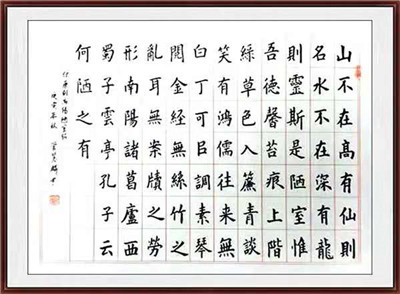 山不在高有仙則
名水不在深有龍
則靈斯是陋室惟
吾德馨苔痕上階
綠草色入簾青談
笑有鴻儒往來無
白丁可㠯調素琴
閱金經無絲竹之
亂耳無案牘之勞
形南陽諸葛廬西
蜀子雲亭孔子云
何陋之有